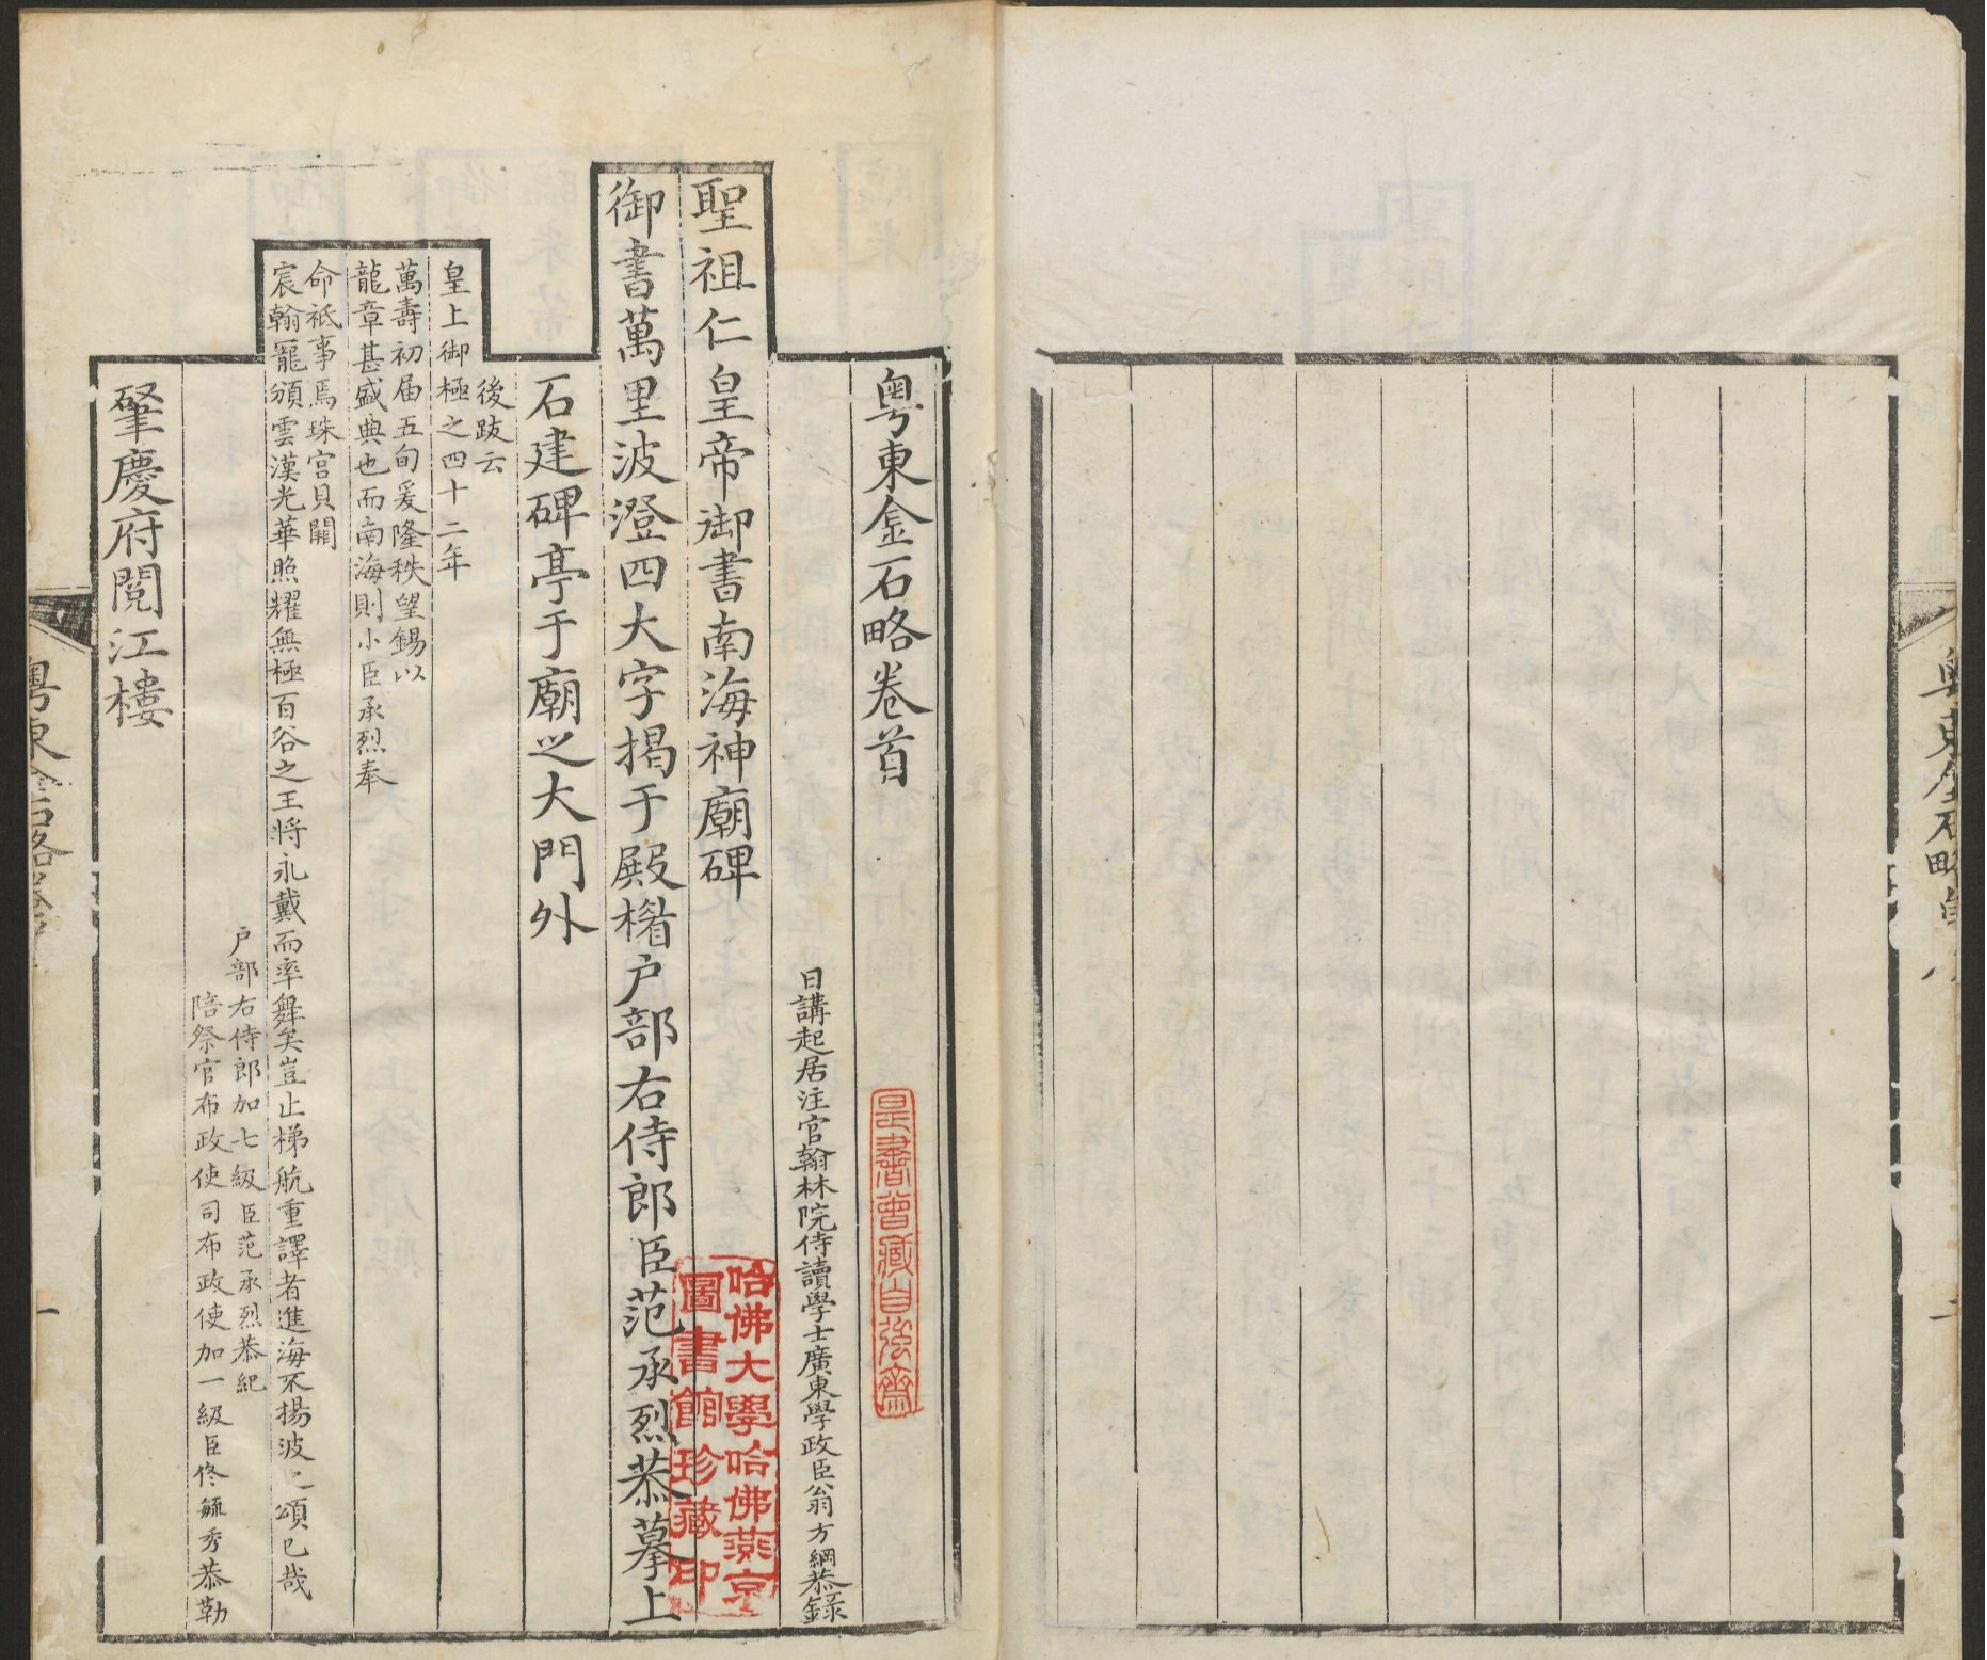 粤東金石略卷首
日講起居注官翰林院侍讀學士廣東學政臣翁方綱恭錄
聖祖仁皇帝御書南海神廟碑
御書萬里波澄四大字揭于殿楣户部右侍郎臣范承烈恭摹上
石建碑亭于廟之大門外
後跋云
皇上御極之四十二年
萬壽初届五旬爰隆秩望錫以
龍章甚盛典也而南海則小臣承烈奉
命祇事焉珠宫貝闕
宸翰寵頒雲漢光華照耀無極百谷之王將永戴而率舞矣豈止梯航重譯者進海不揚波之頌已哉
户部右侍郎加七級臣范承烈恭紀
陪祭官布政使司布政使加一級臣佟毓秀恭勒
肇慶府閱江樓
粤東金石略卷首
一
是書曾藏自强齋
哈佛大學哈佛燕京
圖書館珍藏印
粤東金石略